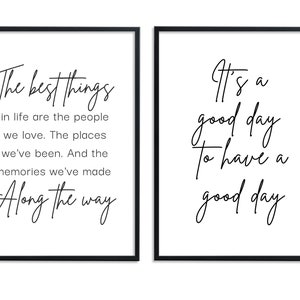 The best things
in life are the people
we love. The places
we've been. And the
memories we've made
Along the way
It's a
good day
to have a
good day